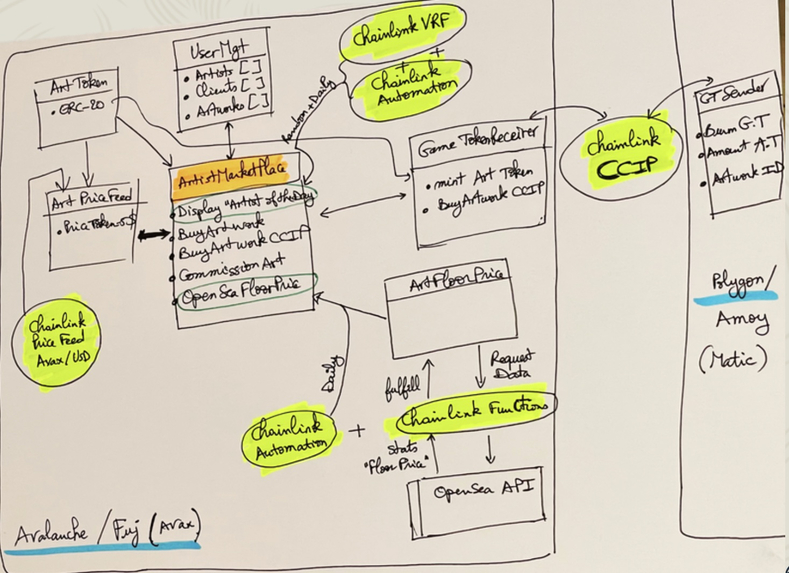 Chainlink VRF
+ +
Chainlink
Automation
Random + Daily
UserMgt
• Artists [ ]
• Clients [ ]
• Artworks [ ]
Art Token
• ERC-20
ArtistMarketPlace
• Display "Artist of the Day
• BuyArtwork
• BuyArtwork CCIP
• Commission Art
• OpenSea FloorPrice
Art PriceFeed
• PriceTokens$
Chainlink
Price Feed
Avax/USD
Game TokenReceiver
• mint Art Token
• BuyArtwork CCIP
Chainlink
CCIP
GT Sender
• Burn G.T
• Amount A.T
• Artwork ID
Polygon/
Amoy
(Matic)
ArtFloorPrice
Daily
fulfill
Request
Data
Chainlink
Automation
+
Chainlink Functions
Stats
"Floor Price"
OpenSea API
Avalanche / Fuj (Avax)